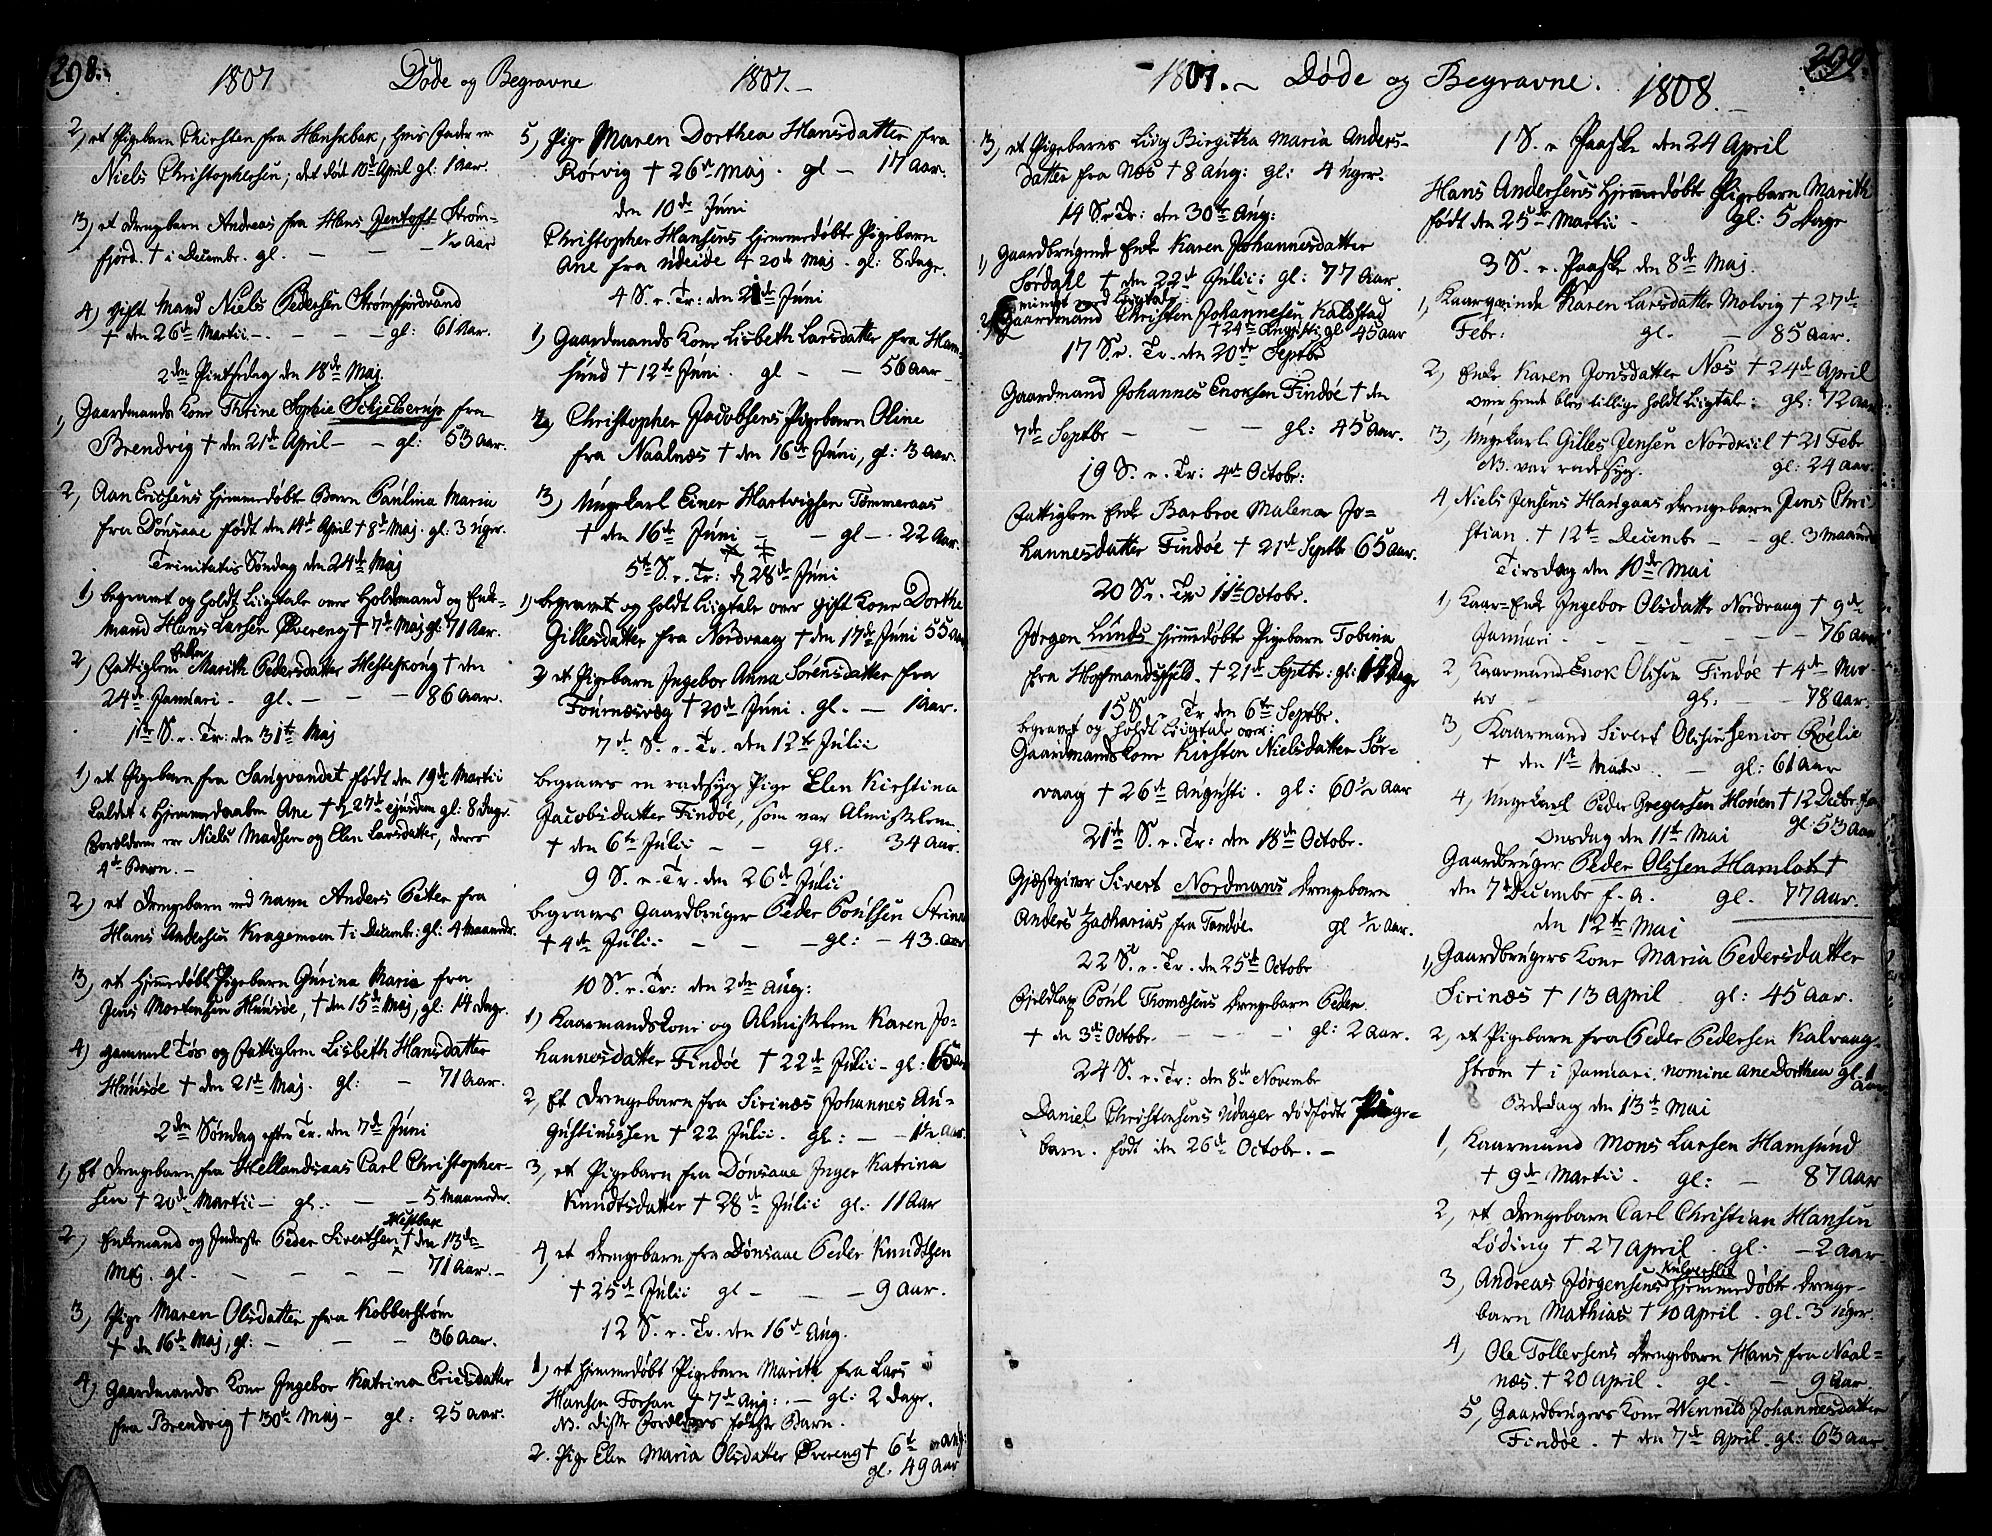 298.
1807 Døde og Begravne 1807.-
2, et Pigebarn Kirsten fra, hvis Fader er
Niels Christophersen; det død 10de April gl: 1 Aar.
3, et Drengebarn Andreas fra Hans Gentoft Strøm-
fjord. † i Decembr. gl. — — ½ Aar
4) Gift Mand Niels Pedersen Strømfjordvand
† den 26de Martii -. - - - gl: 61 Aar.
2den Pintsedag den 18de Maj.
1, Gaardmands Kone Thrine Sophie Schjelderup fra
Brendvig † den 21de April - - gl: 53 Aar.
2, Aan Ericsens hjemmedøbte Barn Paulina Maria
fra Dønsaae født den 14de April † 8de Maj. gl: 3 Uger.
Trinitatis Søndag den 24de Maj
1) begravet og holdt Liigtale over Holdsmand og Enke-
mand Hans Larsen Øvereng † 7de Maj gl: 71 Aar.
2) Fattiglem Enken Marith Pedersdatter Hesteskong † den
24de Januari - gl. - - - 86 Aar.
1ste S. e. Tr: den 31te Maj
1) et Pigebarn fra Sangvandet født den 19de Martii
kaldet i Hjemmedaaben Ane † d 27de ejusdem gl: 8 dage.
Forældrene ere Niels Madsen og Elen Larsdatter, deres
4de Barn. -
2) et Drengebarn ved navn Anders Petter fra
Hans Andersen Kragemoen † i Decembr: gl: 4 Maaneder.
3, et hjemmedøbt Pigebarn Gurina Maria fra
Jens Mortensen Hunsøe, † den 15de Maj, gl: 14 dage.
4) gammel Tøs og Fattiglem Lisbeth Hansdatter
Hunsøe † den 21de Maj. gl: - 71 Aar.
2den Søndag efter Tr. den 7de Juni
1, Et Drengebarn fra Hellandsaas Carl Christopher-
sen † 20de Martii - gl. - - 5 Maaneder.
2, Enkemand og Inderste Peder Sivertsen Westbak † den 13de
Maj. gl. - - - - 71 Aar. -
3, Pige Maren Olsdatter fra Kobberstrøm
† den 16de Maj, gl: - - - 36 Aar.
4, Gaardmands Kone Ingebor Katrina Ericsdatter
fra Brendvig † 30te Maj - gl: 25 Aar.
5, Pige Maren Dorthea Hansdatter fra
Rørvig † 26de Maj. gl - 17 Aar.
den 10de Juni
Christopher Hansens hjemmedøbte Pigebarn
Ane fra † 20de Maj. gl: 8 dage.
4 S. e. Tr: den 21de Juni
1, Gaardmands Kone Lisbeth Larsdatter fra Ham-
sund † 12te Juni. gl - - 56 Aar
2, Christopher Jacobsens Pigebarn Oline
fra Naalnæs † den 16de Juni, gl: 3 Aar.
3, Ungekarl Einer Hartvigsen Tømmeraas
† den 16de Juni - - gl -. 22 Aar.
5te S. e. Tr: d 28de Juni
1, begravet og holdt Liigtale over gift Kone Dorthe
Gillesdatter fra Nordvaag † den 17de Juni 55 Aar
2, et Pigebarn Ingebor Anna Sørensdatter fra
Tournæsvæg † 20de Juni. gl. - 1 Aar.
7de S. e. Tr. den 12te Julii
begraves en radesyg Pige Elen Kirstina
Jacobsdatter Findøe, som var Almisselem
† den 6te Julii - - gl. 34 Aar.
9 S. e. Tr. den 26de Julii
begraves Gaardbruger Peder Poulsen
† 4de Julii - - - gl: - 43 Aar
10 S. e. Tr: den 2den Aug:
1) Kaarmandskone og Almisselem Karen Jo-
hannesdatter Findøe † 22de Julii - gl: 65 Aar
2, Et Drengebarn fra Sirinæs Johannes Au-
gustinussen † 22 Julii. gl: - - 1½ Aar.
3, et Pigebarn fra Dønsaae Inger Katrina
Knudtsdatter † 28de Julii gl. 11 Aar
4, et Drengebarn fra Dønsaae Peder Knudtsen
† 25de Julii gl - - - 9 Aar.
12 S. e. Tr. den 16de Aug.
1, et hjemmedøbt Pigebarn Marith fra Lars
Hansen Forsan † 7de Aug: . - gl: 2 dage.
NB. disse Forældres første Barn.
2. Pige Elen Maria Olsdatter Øvereng † 6te Aug:
gl. 49 Aar
299.
1807. - Døde og Begravne. 1808.-
3, et Pigebarns Liig Birgitha Maria Anders-
datter fra Næs † 8 Aug: gl: 4 Uger.
14 S. e. Tr: den 30te Aug:
1, Gaardbrugende Enke Karen Johannesdatter
Sørdahl † den 22de Julii: gl: 77 Aar.
Liigtale
2, Gaardmand Christen Johannesen Kalstad
† 24de Augusti gl 45 Aar
17 S. e. Tr. den 20de Septbr
Gaardmand Johannes Enoksen Findøe † den
7de Septbr - - - gl: 45 Aar.
19 S. e. Tr: 4de Octobr:
Fattiglem Enke Barbroe Malena Jo-
hannesdatter Findøe † 21de Septbr 65 Aar.
20 S. e. Tr 11te Octobr.
Jørgen Lunds hjemmedøbte Pigebarn Tobina
fra Hofmandsfjeld. † 21de Septbr: gl: 14 Dage
15 S. e. Tr den 6te Septbr.
begravet og holdt Liigtale over:
Gaardmandskone Kirsten Nielsdatter Sør-
vaag † 26de Augusti. gl: 60½ Aar
21de S. e. Tr: den 18de Octobr.
Gjæstgiver Sivert Nordmans Drengebarn
Anders Zacharias fra Tandøe. gl ½ Aar.
22 S. e. Tr. den 25de Octobr
Fjeldlap Poul Thomæsens Drengebarn Peder
† den 3de Octobr. - - - gl: 2 Aar.
24 S. e. Tr: den 8de Novembr
Daniel Christensens dødfødte Pige-
barn. født den 26de Octobr. -
1 S. e Paaske den 24 April
Hans Andersens hjemmedøbte Pigebarn Marith
født den 25de Martii - gl: 5 dage
3 S. e. Paaske den 8de Maj.
1, Kaarqvinde Karen Larsdatter Molvig † 27de
Febr: gl. - 85 Aar.
2, Enke Karen Jonsdatter Næs † 24de April
over hende blev tillige holdt Liigtale: gl: 72 Aar
3, Ungekarl Gilles Jensen Nordkiil † 21 Febr
NB. var radesyg. gl: 24 Aar
4, Niels Jensens Haugaas Drengebarn Jens Chri-
stian. † 12te Decembr - - gl. 3 Maaneder
Tirsdag den 10de Mai
1, Kaar-Enke Ingebor Olsdatter Nordvaag † 9de
Januari - - - - - - 76 Aar
2, Kaarmand Enok Olssen Findøe † 4de Mar-
tii - gl. - - 78 Aar.
3, Kaarmand Sivert Olssen senior Røelie
† den 1ste Martii. - gl: 61 Aar
4, Ungekarl Peder Gregersen Honen † 12 Decbr
gl: 53 Aar
Onsdag den 11te Mai
Gaardbruger Peder Olssen Hamlot †
den 7 Decembr f. A. gl. 77 Aar.
den 12te Mai
1, Gaardbrugers Kone Maria Pedersdatter
Sirinæs † 13 April gl: 45 Aar.
2, et Pigebarn fra Peder Pedersen Kalvaag-
strøm † i Januari. nomine Ane Dorthea gl. 1 Aar
Bededag den 13de Mai
1, Kaarmand Mons Larsen Hamsund
† 9de Martii. gl: - 87 Aar
2, et Drengebarn Carl Christian Hansen
Løding † 27 April. gl: - 2 Aar
3, Andreas Jørgensens hjemmedøbte Drenge-
barn Mathias † 10 April. gl. 3 Uger.
4, Ole Tollersens Drengebarn Hans fra Naal-
næs. † 20 April. gl. - 9 Aar
5, Gaardbrugers Kone Wennild Johannesdatter
Findøe. † den 7de April. gl: 63 Aar